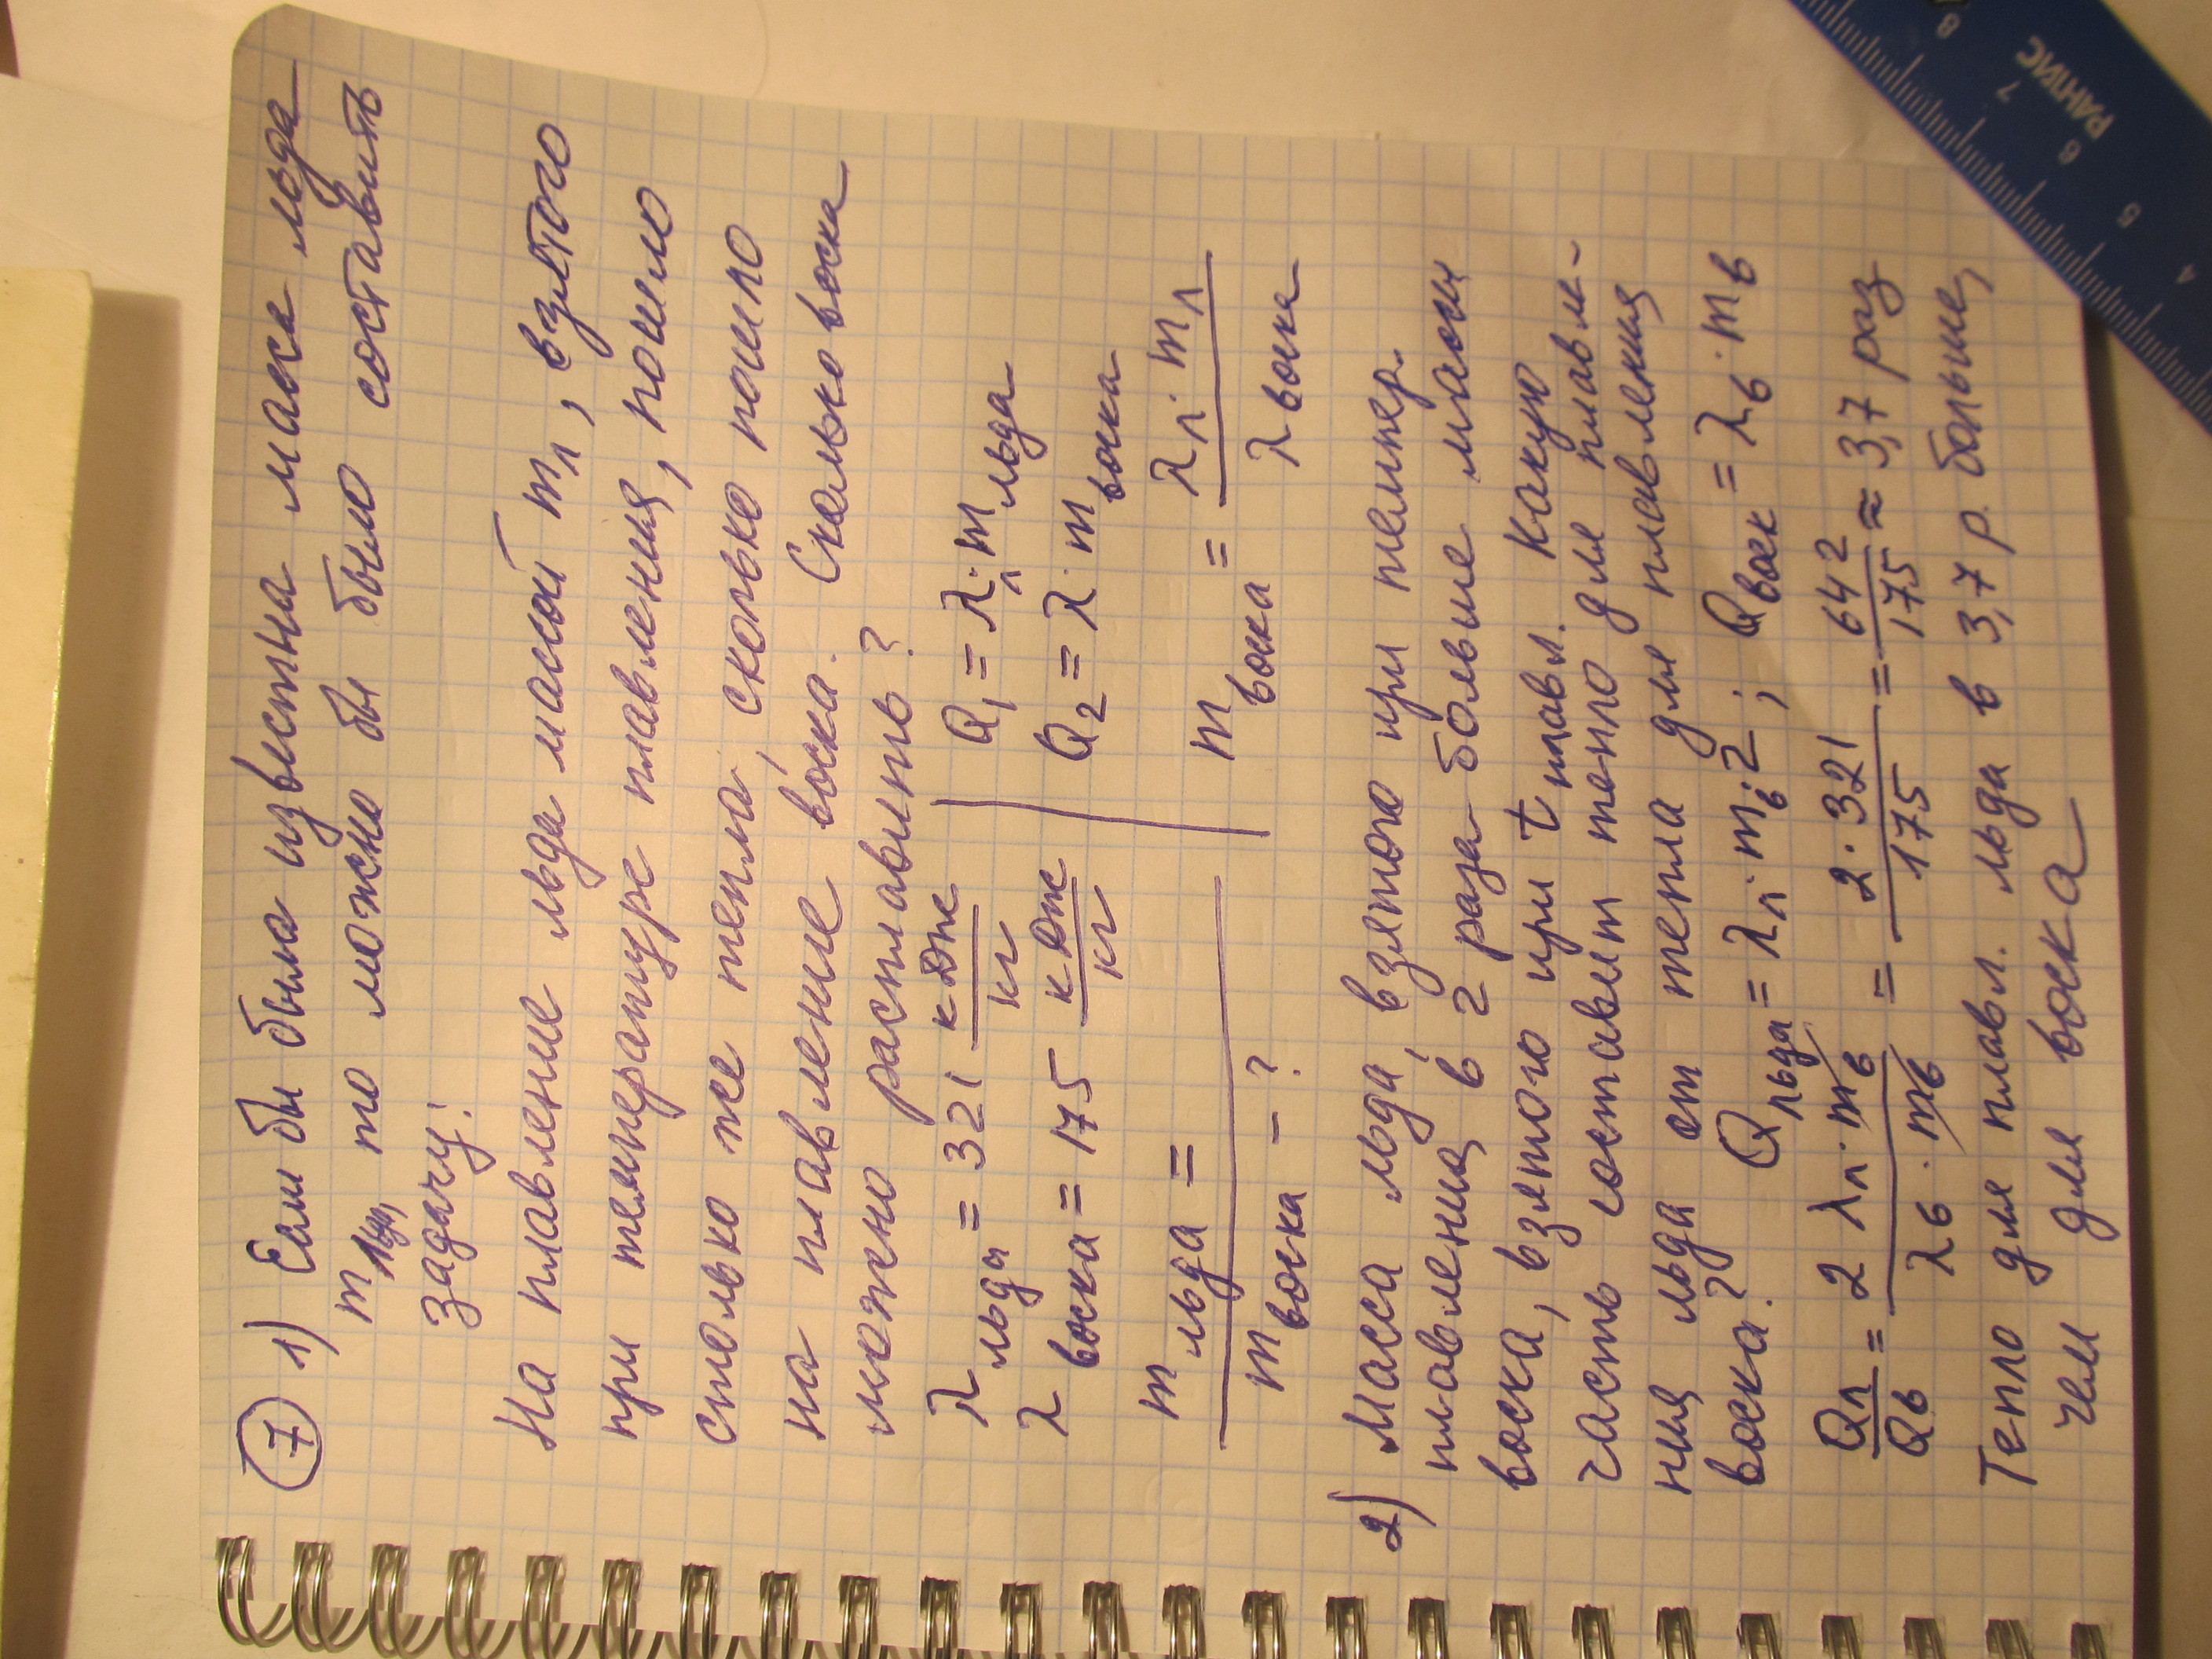 7 1) Если бы была известна масса льда
m льда, то можно бы было составить
задачу:
На плавление льда массой mл, взятого
при температуре плавления, пошло
столько же тепла, сколько пошло
на плавление воска. Сколько воска
можно расплавить?
λ льда = 321 кДж/кг
λ воска = 175 кДж/кг
m льда =
m воска - ?
Q1 = λл · m льда
Q2 = λ · m воска
m воска = λл · mл / λ воска
2) Масса льда, взятого при темпер.
плавления, в 2 раза больше массы
воска, взятого при t плавл. Какую
часть составит тепло для плавле-
ния льда от тепла для плавления
воска? Q льда = λл · mв · 2; Q воск = λв · mв
Qл/Qв = 2 λл · mв / λв · mв = 2 · 321 / 175 = 642 / 175 ≈ 3,7 раз
Тепло для плавл. льда в 3,7 р. больше,
чем для воска
РАНПИС
4 5 6 7 8